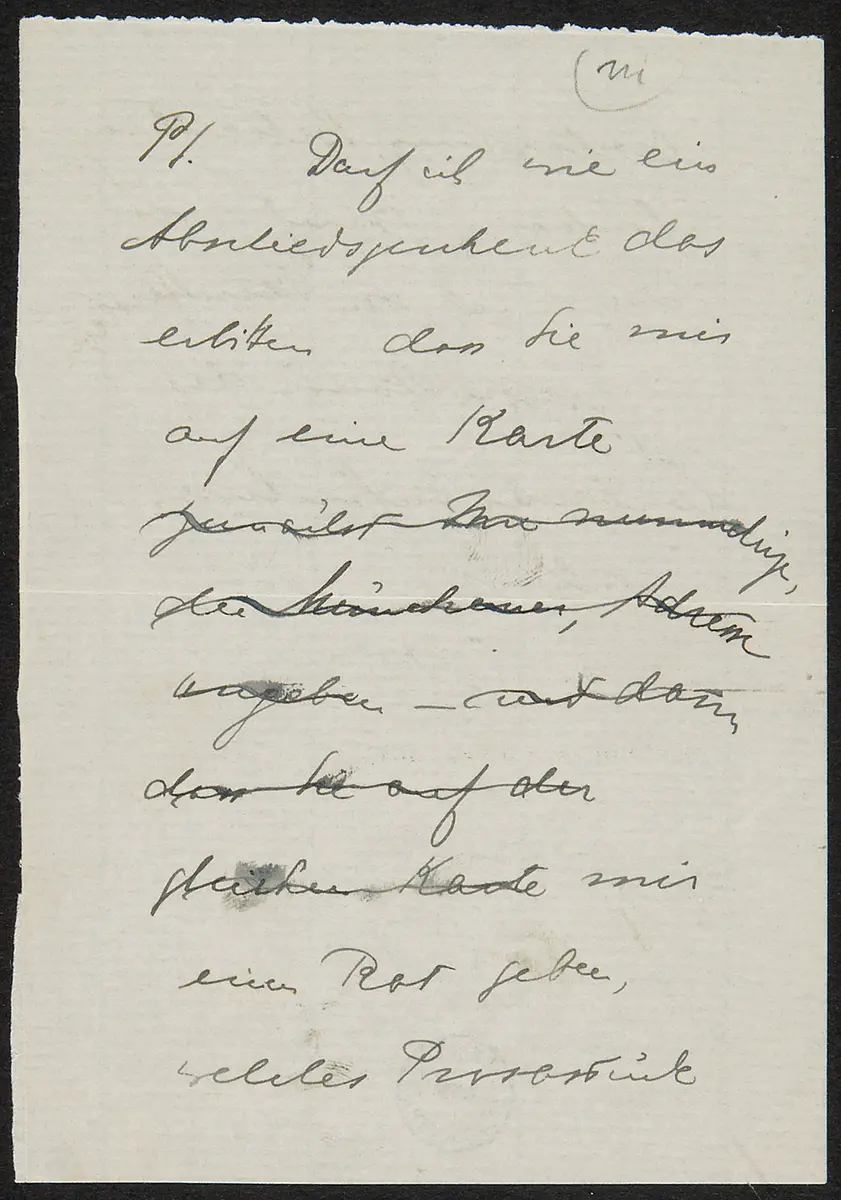 III
PS. Darf ich wie ein
Abschiedsgeschenk das
erbitten dass Sie mir
auf eine Karte
zunächst Ihre nunmehrige,
die Münchener, Adresse
angeben – und dann
dass Sie auf der
gleichen Karte mir
einen Rat geben,
welches Prosastück